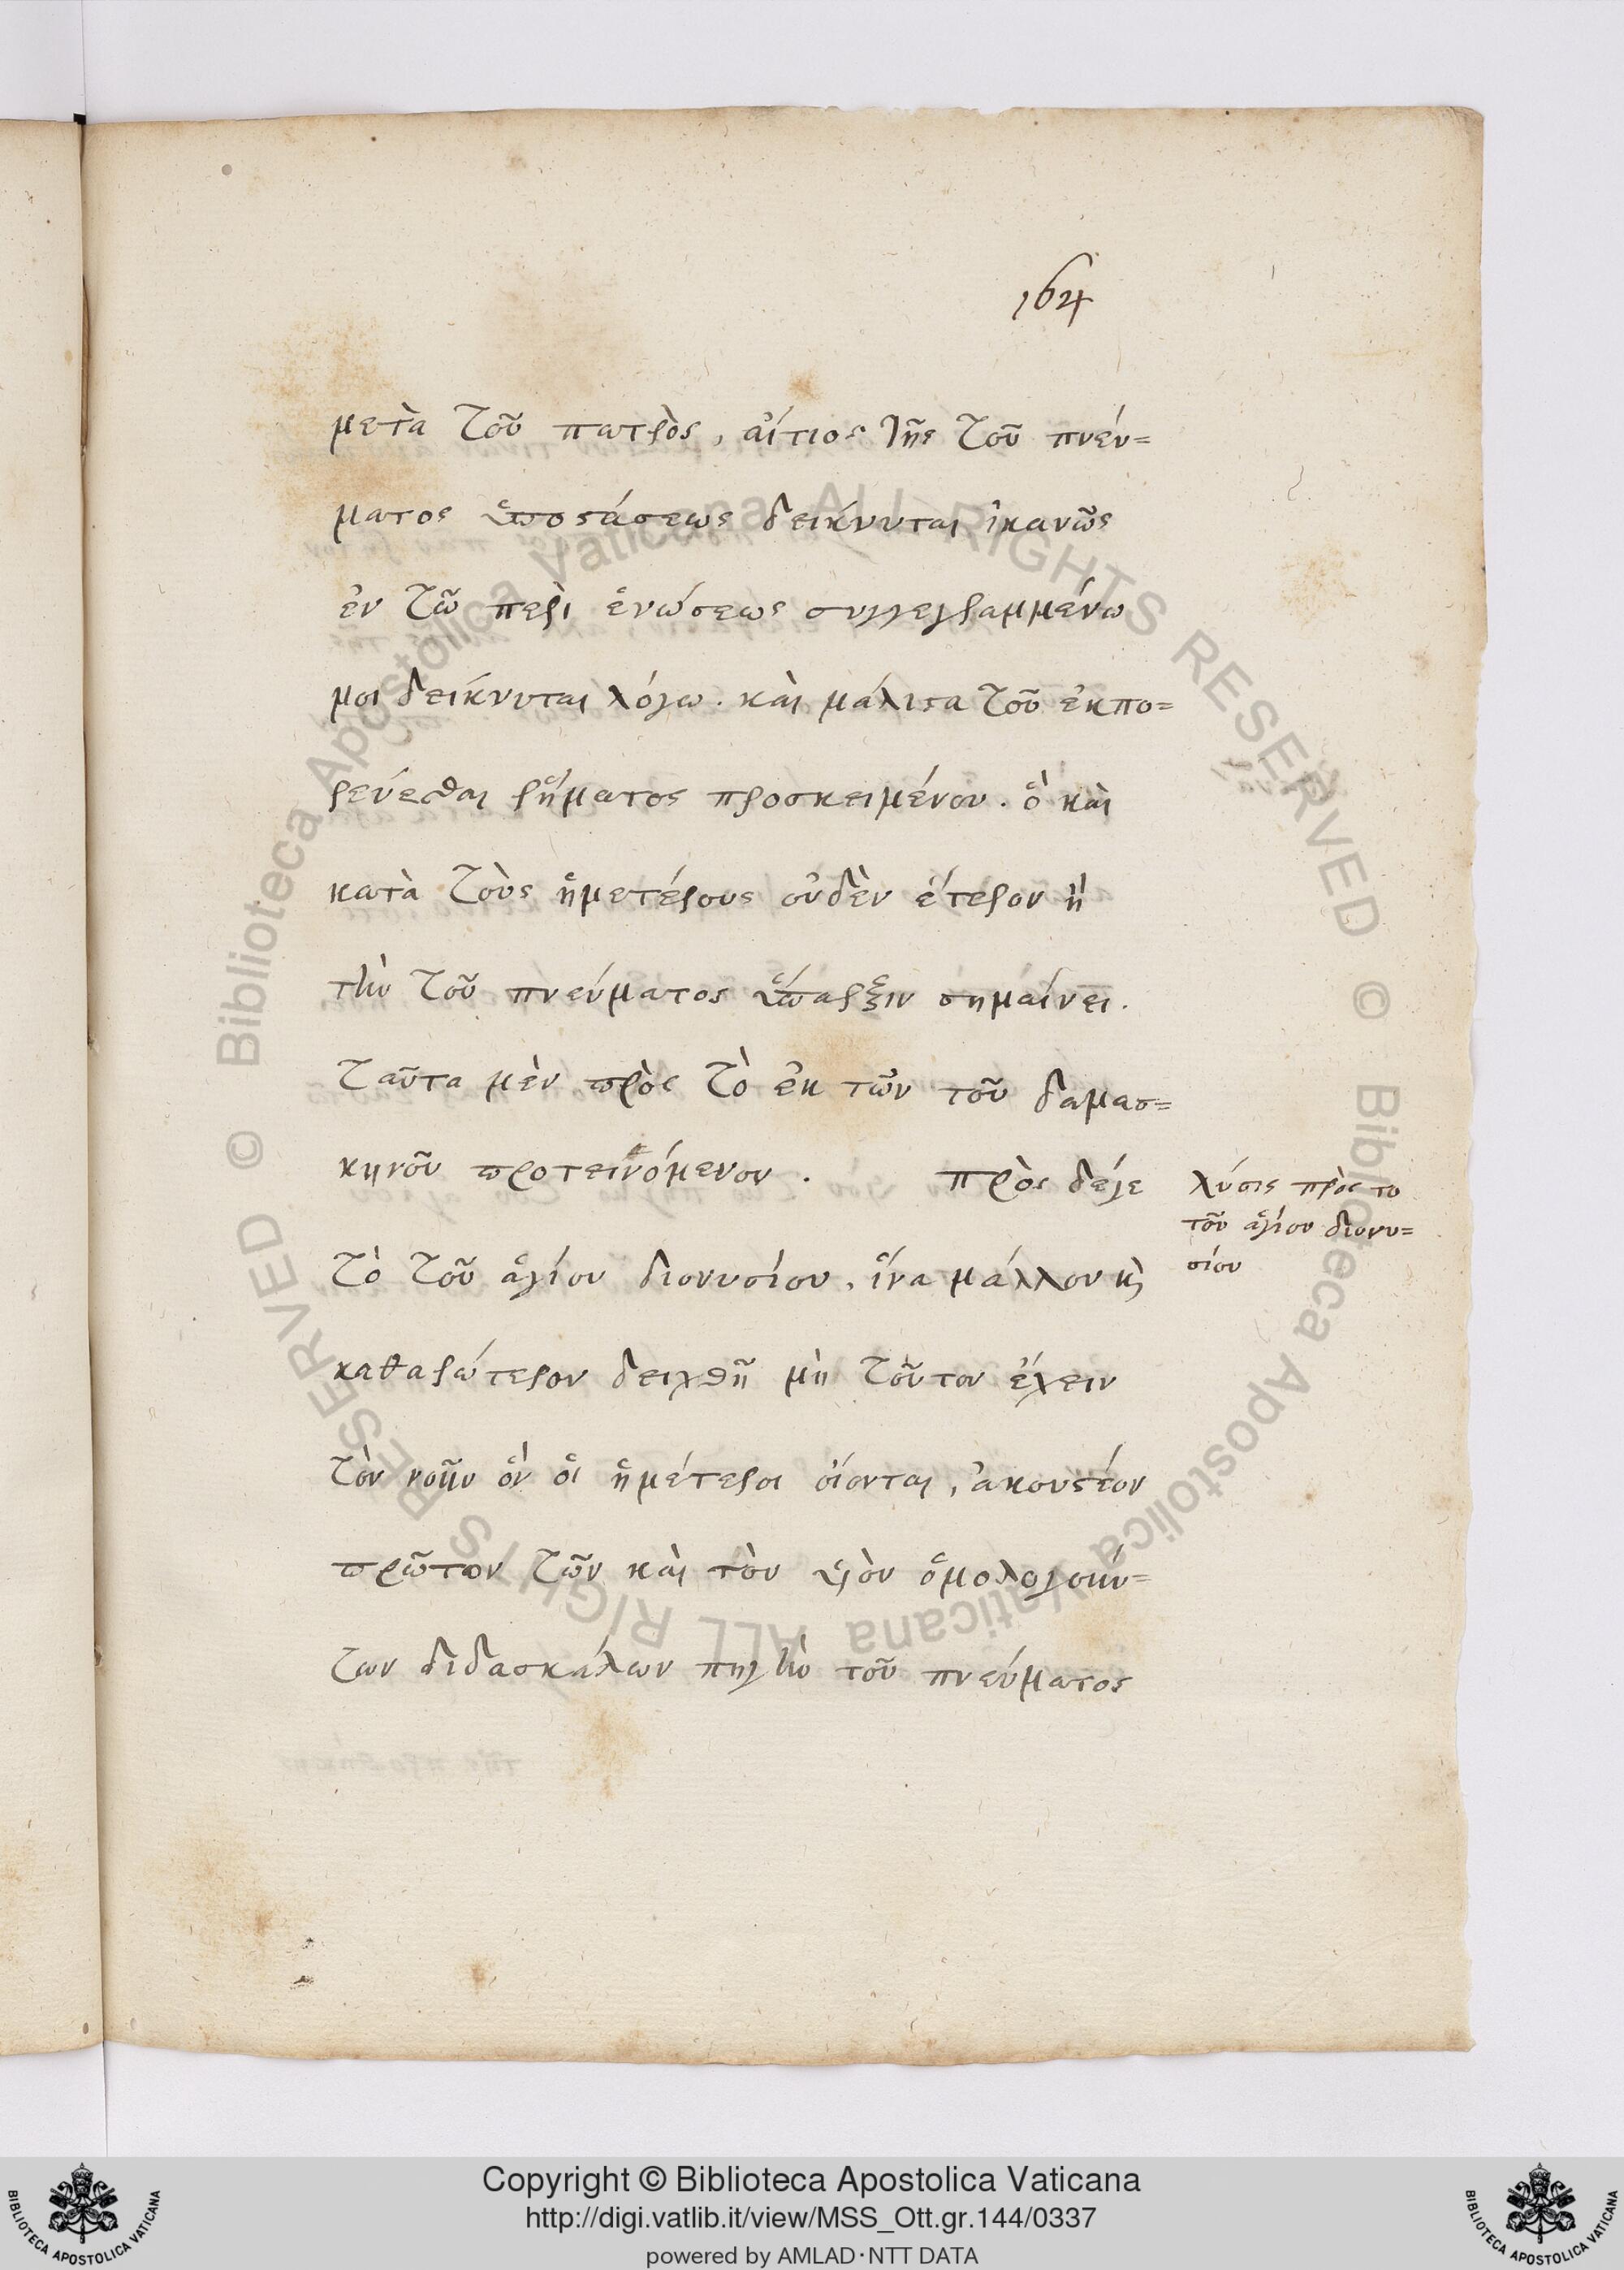 164
μετὰ τοῦ πατρὸς, αἴτιος τῆς τοῦ πνεύ=
ματος ὑποστάσεως δείκνυται ἱκανῶς
ἐν τῶ περὶ ἑνώσεως συγγεγραμμένω
μοι δείκνυται λόγω. καὶ μάλιστα τοῦ ἐκπο=
ρεύεσθαι ῥήματος προσκειμένου. ὃ καὶ
κατὰ τοὺς ἡμετέρους οὐδὲν ἕτερον ἢ
τὴν τοῦ πνεύματος ὕπαρξιν σημαίνει.
ταῦτα μὲν πρὸς τὸ ἐκ τῶν τοῦ δαμασ=
κηνοῦ προτεινόμενον. πρὸς δέγε
τὸ τοῦ ἁγίου διονυσίου, ἵνα μάλλον καὶ
καθαρώτερον δειχθῆ μὴ τοῦτον ἔχειν
τὸν νοῦν ὃν οἱ ἡμέτεροι οἴονται, ἀκουστέον
πρῶτον τῶν καὶ τὸν υἱὸν ὁμολογούν=
των διδασκάλων πηγὴν τοῦ πνεύματος
λύσις πρὸς το
τοῦ ἁγίου διονυ=
σίου
© Biblioteca Apostolica Vaticana ALL RIGHTS RESERVED
© Biblioteca Apostolica Vaticana ALL RIGHTS RESERVED
Copyright © Biblioteca Apostolica Vaticana
http://digi.vatlib.it/view/MSS_Ott.gr.144/0337
powered by AMLAD·NTT DATA
BIBLIOTECA APOSTOLICA VATICANA
BIBLIOTECA APOSTOLICA VATICANA